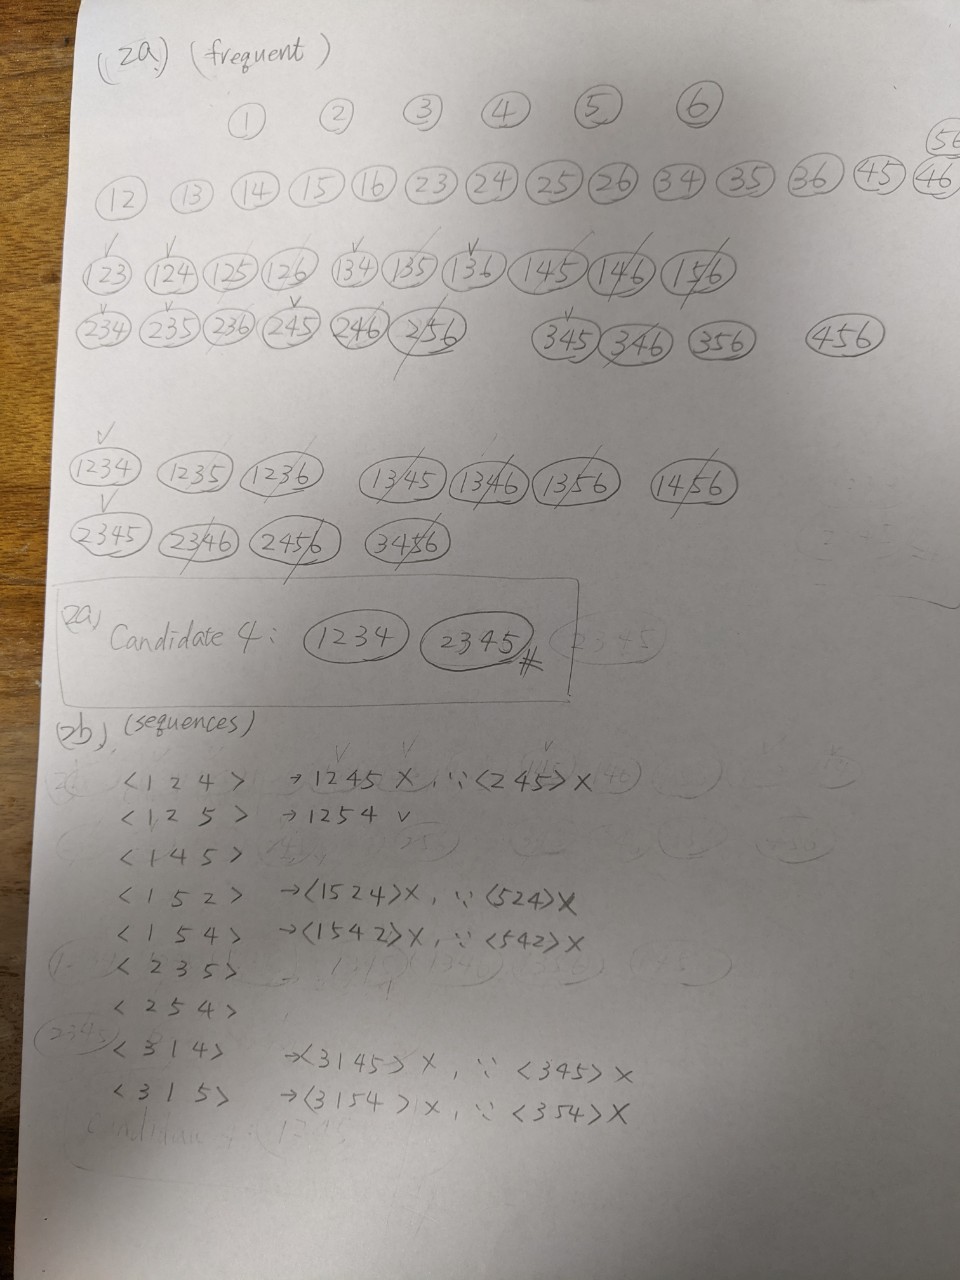 (2a) (frequent)
1 2 3 4 5 6
56
12 13 14 15 16 23 24 25 26 34 35 36 45 46
✓ ✓ ✓ ✓
123 124 125 126 134 135 136 145 146 156
✓ ✓ ✓ ✓
234 235 236 245 246 256 345 346 356 456
✓
1234 1235 1236 1345 1346 1356 1456
✓
2345 2346 2456 3456
2a) Candidate 4: 1234 2345 # 2345
(2b) (sequences)
<1 2 4> → 1245 X, ∵ <245> X
<1 2 5> → 1254 ✓
<1 4 5>
<1 5 2> → <1524> X, ∵ <524> X
<1 5 4> → <1542> X, ∵ <542> X
<2 3 5>
<2 5 4>
<3 1 4> → <3145> X, ∵ <345> X
<3 1 5> → <3154> X, ∵ <354> X